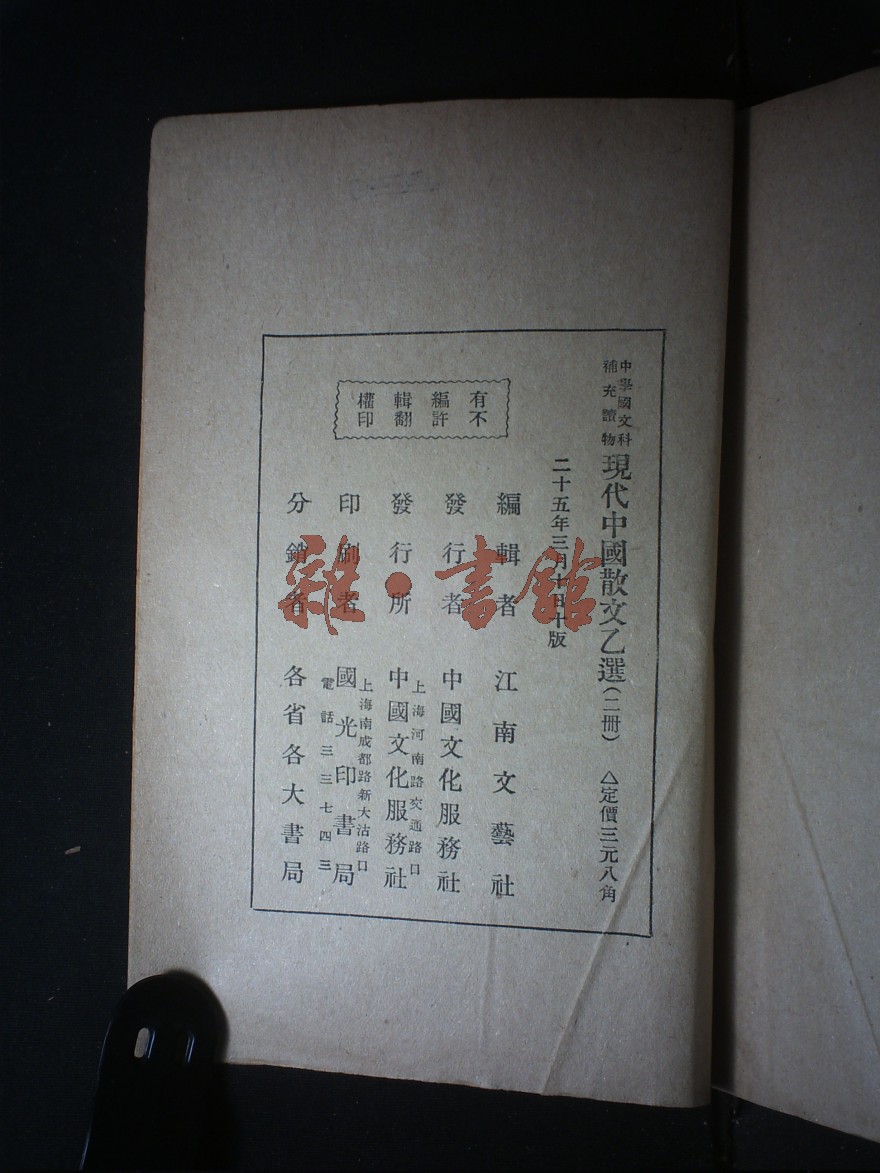 中學國文科
補充讀物
現代中國散文乙選(二冊) △定價三元八角
二十五年三月十日十版
有編輯權
不許翻印
編輯者 江南文藝社
發行者 中國文化服務社
上海河南路交通路口
發行所 中國文化服務社
上海南成都路新大沽路口
印刷者 國光印書局
電話三三七四三
分銷者 各省各大書局
雜·書館